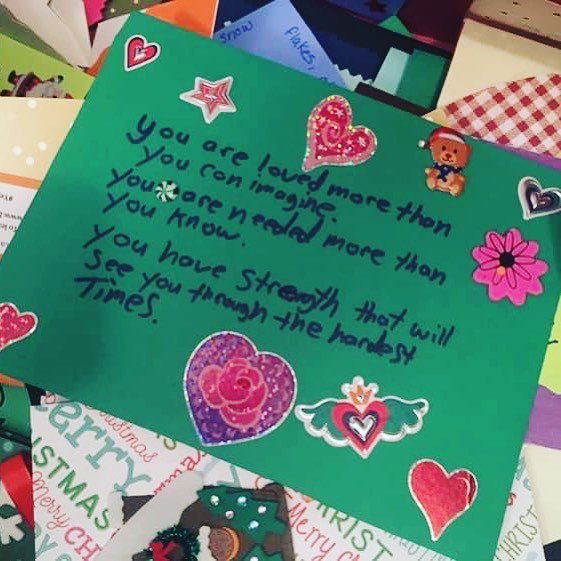 snow
flakes,
You are loved more than
you can imagine.
You are needed more than
you know.
You have strength that will
see you through the hardest
Times.
erry
Christmas
STMAS
Merry CHRIST
Merry
Merry Christmas
CHRIST